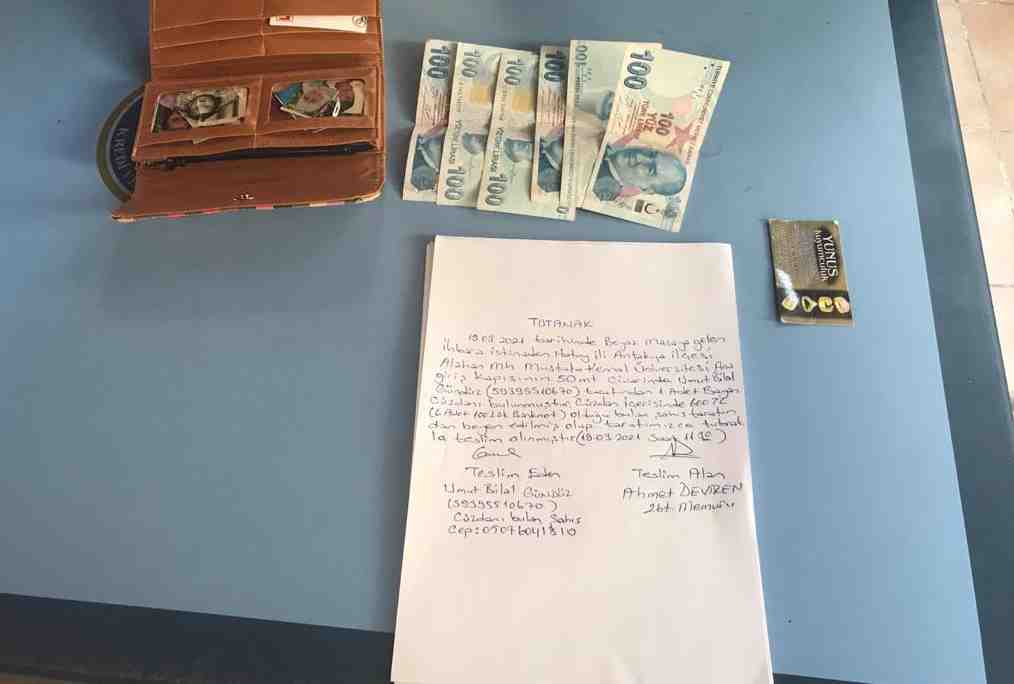 KREDİ
100
100
100
100
100
100
100 YÜZ
TÜRK LİRASI
100
100
YUNUS
Kuyumculuk
TUTANAK
19.03.2021 tarihinde Beyaz Masaya gelen
ihbara istinaden Hatay ili Antakya ilçesi
Alahan Mh Mustafa Kemal Üniversitesi Ana
giriş kapısının 50 mt Civarında Umut Bilal
Gündüz (59395510670) tarafından 1 Adet Bayan
Cüzdanı bulunmuştur. Cüzdan içerisinde 600 TL
(6 Adet 100 lük Banknot) olduğu bulan şahıs tarafın
dan beyan edilmiş olup tarafımızca tutanak
la teslim alınmıştır (19.03.2021 Saat 11 10)
Teslim Eden
Teslim Alan
Umut Bilal Gündüz
Ahmet DEVİREN
(59395510670)
Zbt. Memuru
Cüzdanı bulan Şahıs
Cep: 05076041810